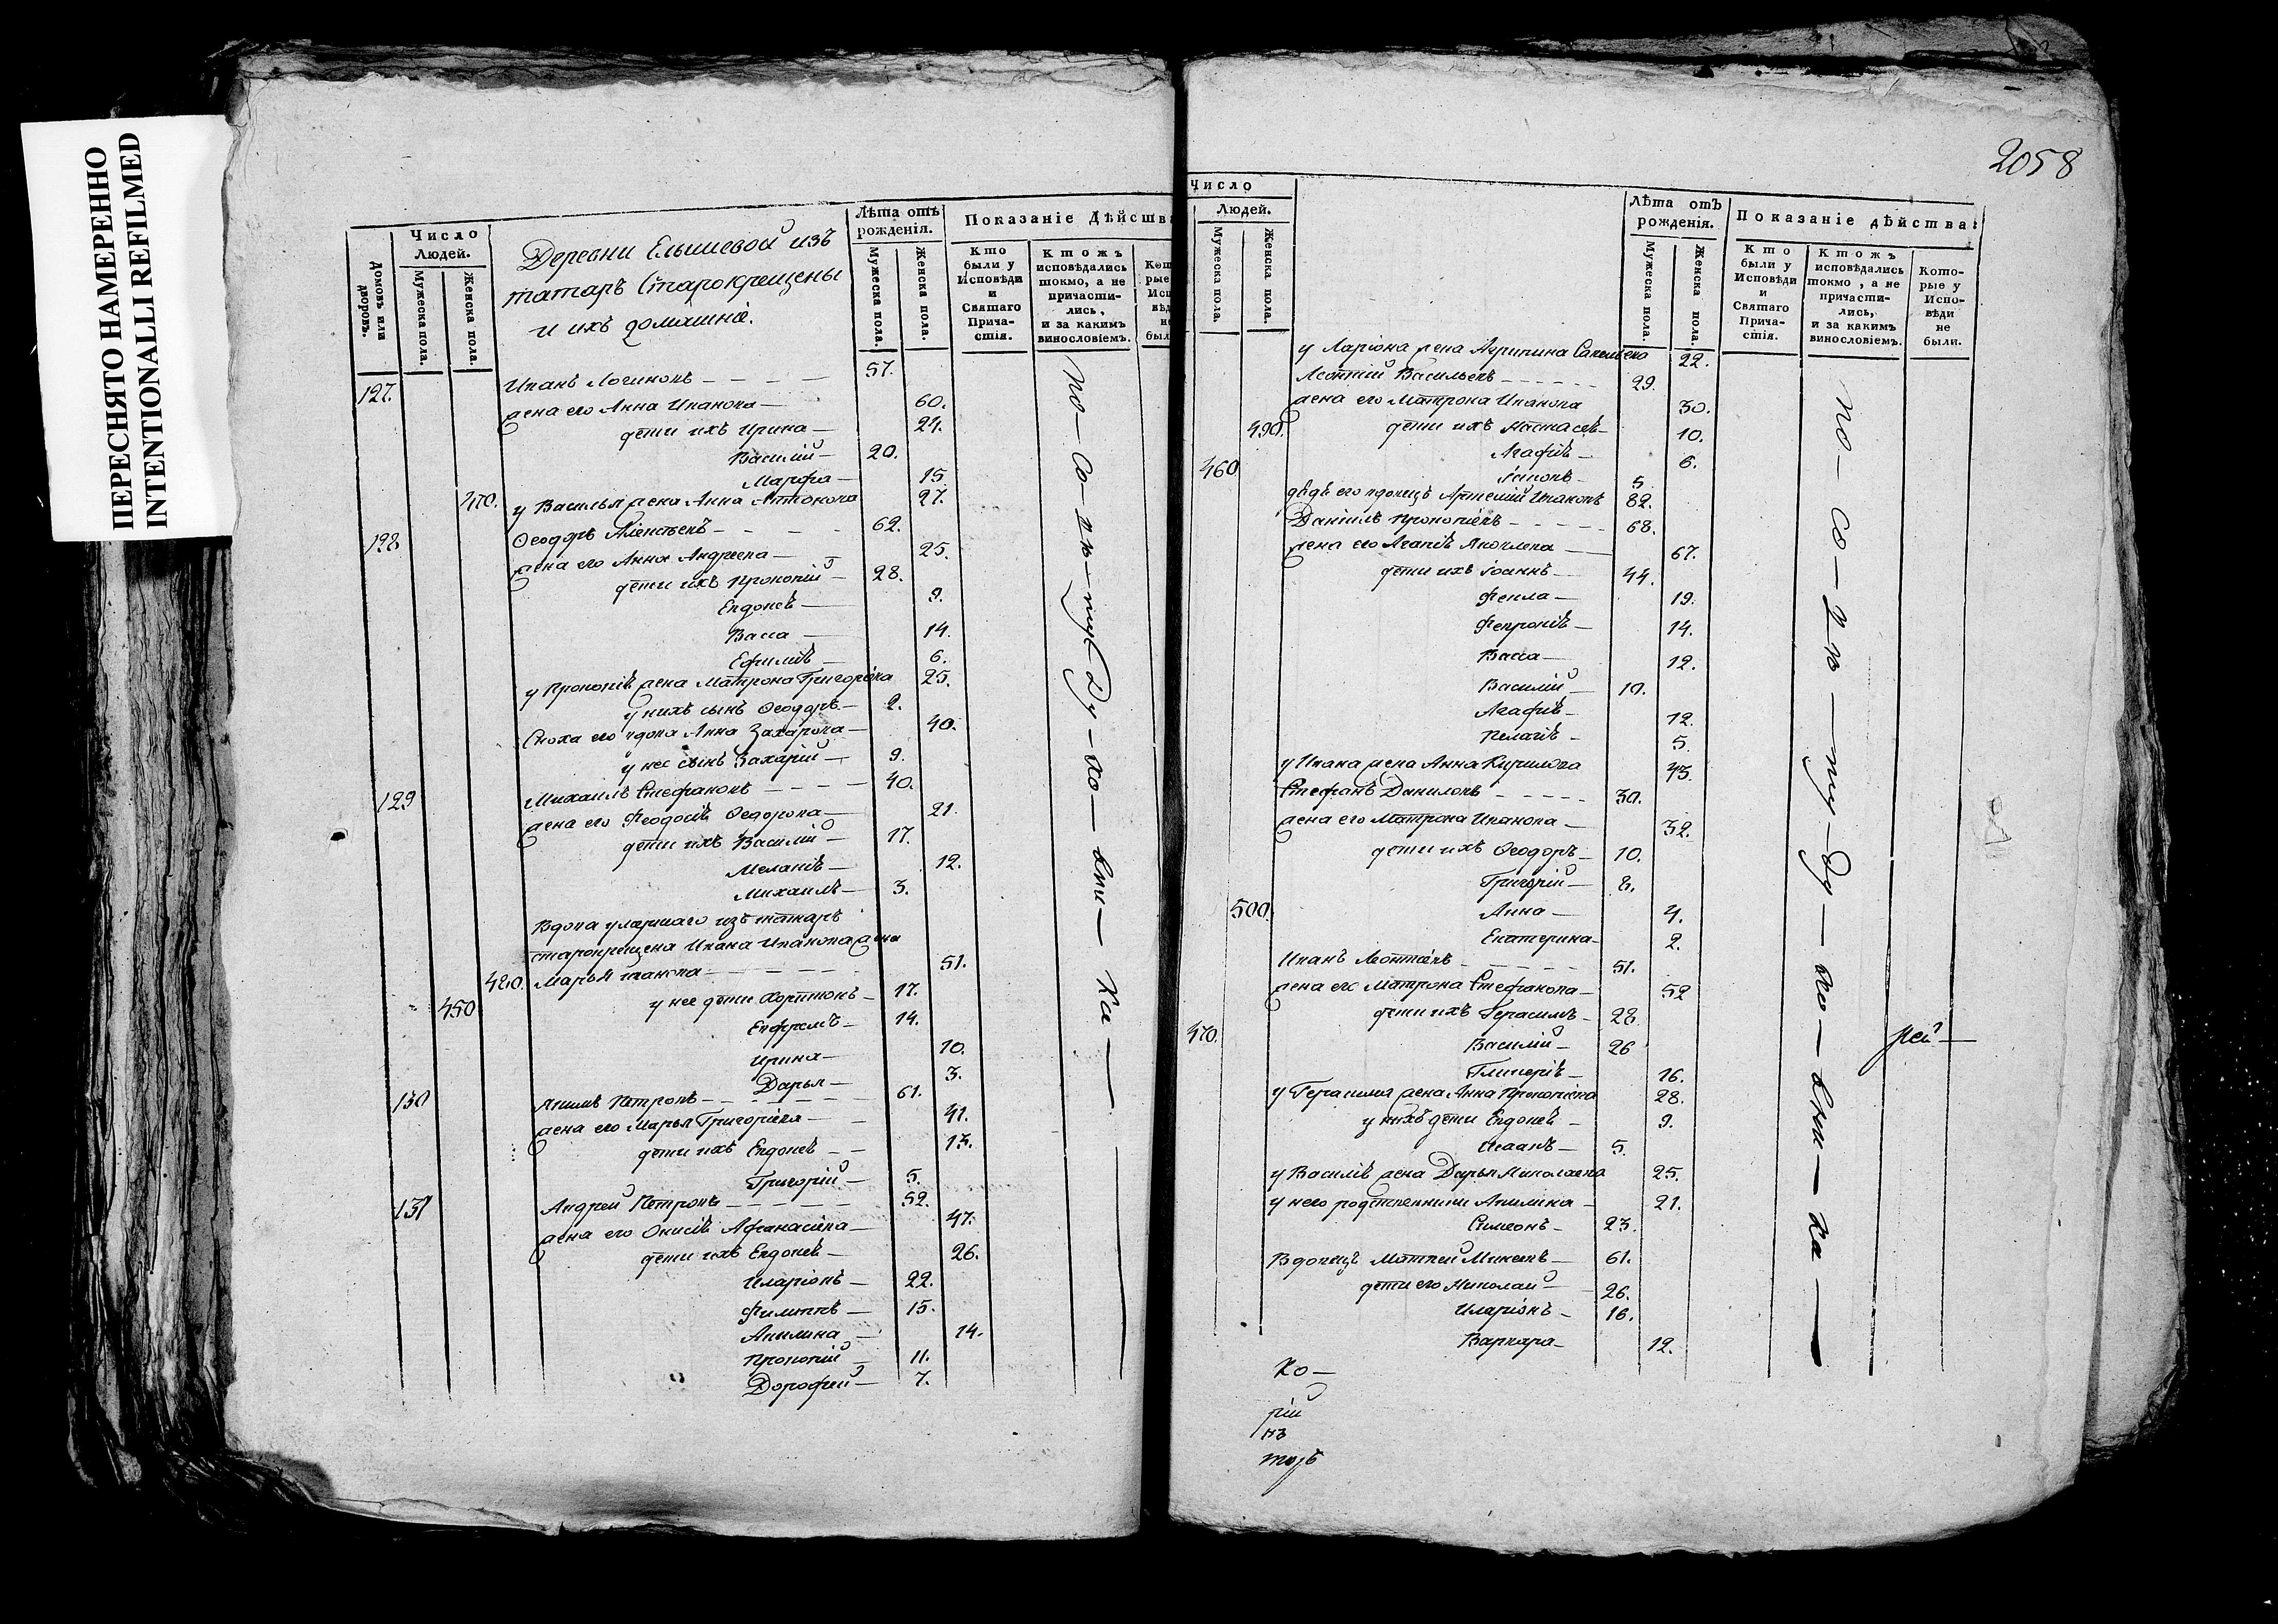 ПЕРЕСНЯТО НАМЕРЕННО
INTENTIONALLI REFILMED
Домовъ или дворовъ.
Число Людей.
Мужеска пола.
Женска пола.
Деревни Елышевой изъ
татаръ Старокрещены
и ихъ домашніе.
Лѣта отъ рожденія.
Мужеска пола.
Женска пола.
Показаніе Дѣйства
Кто были у Исповѣди и Святаго Причастія.
Ктожъ исповѣдались токмо, а не причастились, и за какимъ винословіемъ.
127. Иванъ Логиновъ 57.
жена его Анна Иванова 60.
дети ихъ Ирина 24.
Василій 20.
Марфа 15.
470. у Василья жена Анна Антонова 27.
128 Ѳеодоръ 62.
жена его Анна Андреева 25.
дети ихъ Прокопій 28.
Евдокеѣ 9.
Васса 14.
Ефиміѣ 6.
у Прокопіѣ жена Матрона Григоріева 25.
у нихъ сынъ Ѳеодоръ 2.
Сноха его вдова Анна Захарова 40.
у нее сынъ Захарій 9.
129 Михаилъ Стефановъ 40.
жена его Феодосіѣ Ѳедорова 21.
дети ихъ Василій 17.
Меланіѣ 12.
Михаилъ 3.
Вдова умаршаго изъ татаръ
старокрещена Ивана Иванова жена
480. Марья 51.
450 у нее дети Харитонъ 17.
Евфремъ 14.
Ирина 10.
Дарья 3.
130 Якимъ Петровъ 61.
жена его Марья Григоріева 41.
дети ихъ Евдокеѣ 13.
Григорій 5.
131 Андрей Петровъ 52.
жена его Онисіѣ Афанасіева 47.
дети ихъ Евдокеѣ 26.
Иларіонъ 22.
Филиппъ 15.
Акилина 14.
Прокопій 11.
Дорофей 7.
по-со-вѣ-ту Ду-хо-вни-ка
2058
Число Людей.
Мужеска пола.
Женска пола.
Лѣта отъ рожденія.
Мужеска пола.
Женска пола.
Показаніе дѣйства:
Кто были у Исповѣди и Святаго Причастія.
Ктожъ исповѣдались токмо, а не причастились, и за какимъ винословіемъ.
Которые у Исповѣди не были.
у Ларіона жена Агрипина Савельева 22.
Леонтий Васильевъ 29.
жена его Матрона Иванова 30.
490. дети ихъ Настасеѣ 10.
Агафіѣ 6.
460 5
дѣдъ его вдовецъ Артемій Ивановъ 82.
Даніилъ Прокопіевъ 68.
жена его Агапіѣ Яковлева 67.
дети ихъ Іоаннъ 44.
Фекла 19.
Февроніѣ 14.
Васса 12.
Василій 10.
Агафіѣ 12.
Пелагіѣ 5.
у Ивана жена Анна Кирилова 43.
Стефанъ Даниловъ 30.
жена его Матрона Иванова 32.
дети ихъ Ѳеодоръ 10.
Григорій 8.
500. Анна 4.
Екатерина 2.
Иванъ Леонтіевъ 51.
жена его Матрона Стефанова 52
дети ихъ Герасимъ 28
470. Василій 26
Гликеріѣ 16.
у Герасима жена Анна Прокопіева 28.
у нихъ дети Евдокеѣ 9.
Исаакъ 5.
у Василіѣ жена Дарья Николаева 25.
у него родственники Акилина 21.
Симеонъ 23.
Вдовецъ Матвей Микеевъ 61.
дети его Николай 26.
Иларіонъ 16.
Варвара 12.
по-со-вѣ-ту-Ду-хо-вни-ка
рей
ко
рій
нъ